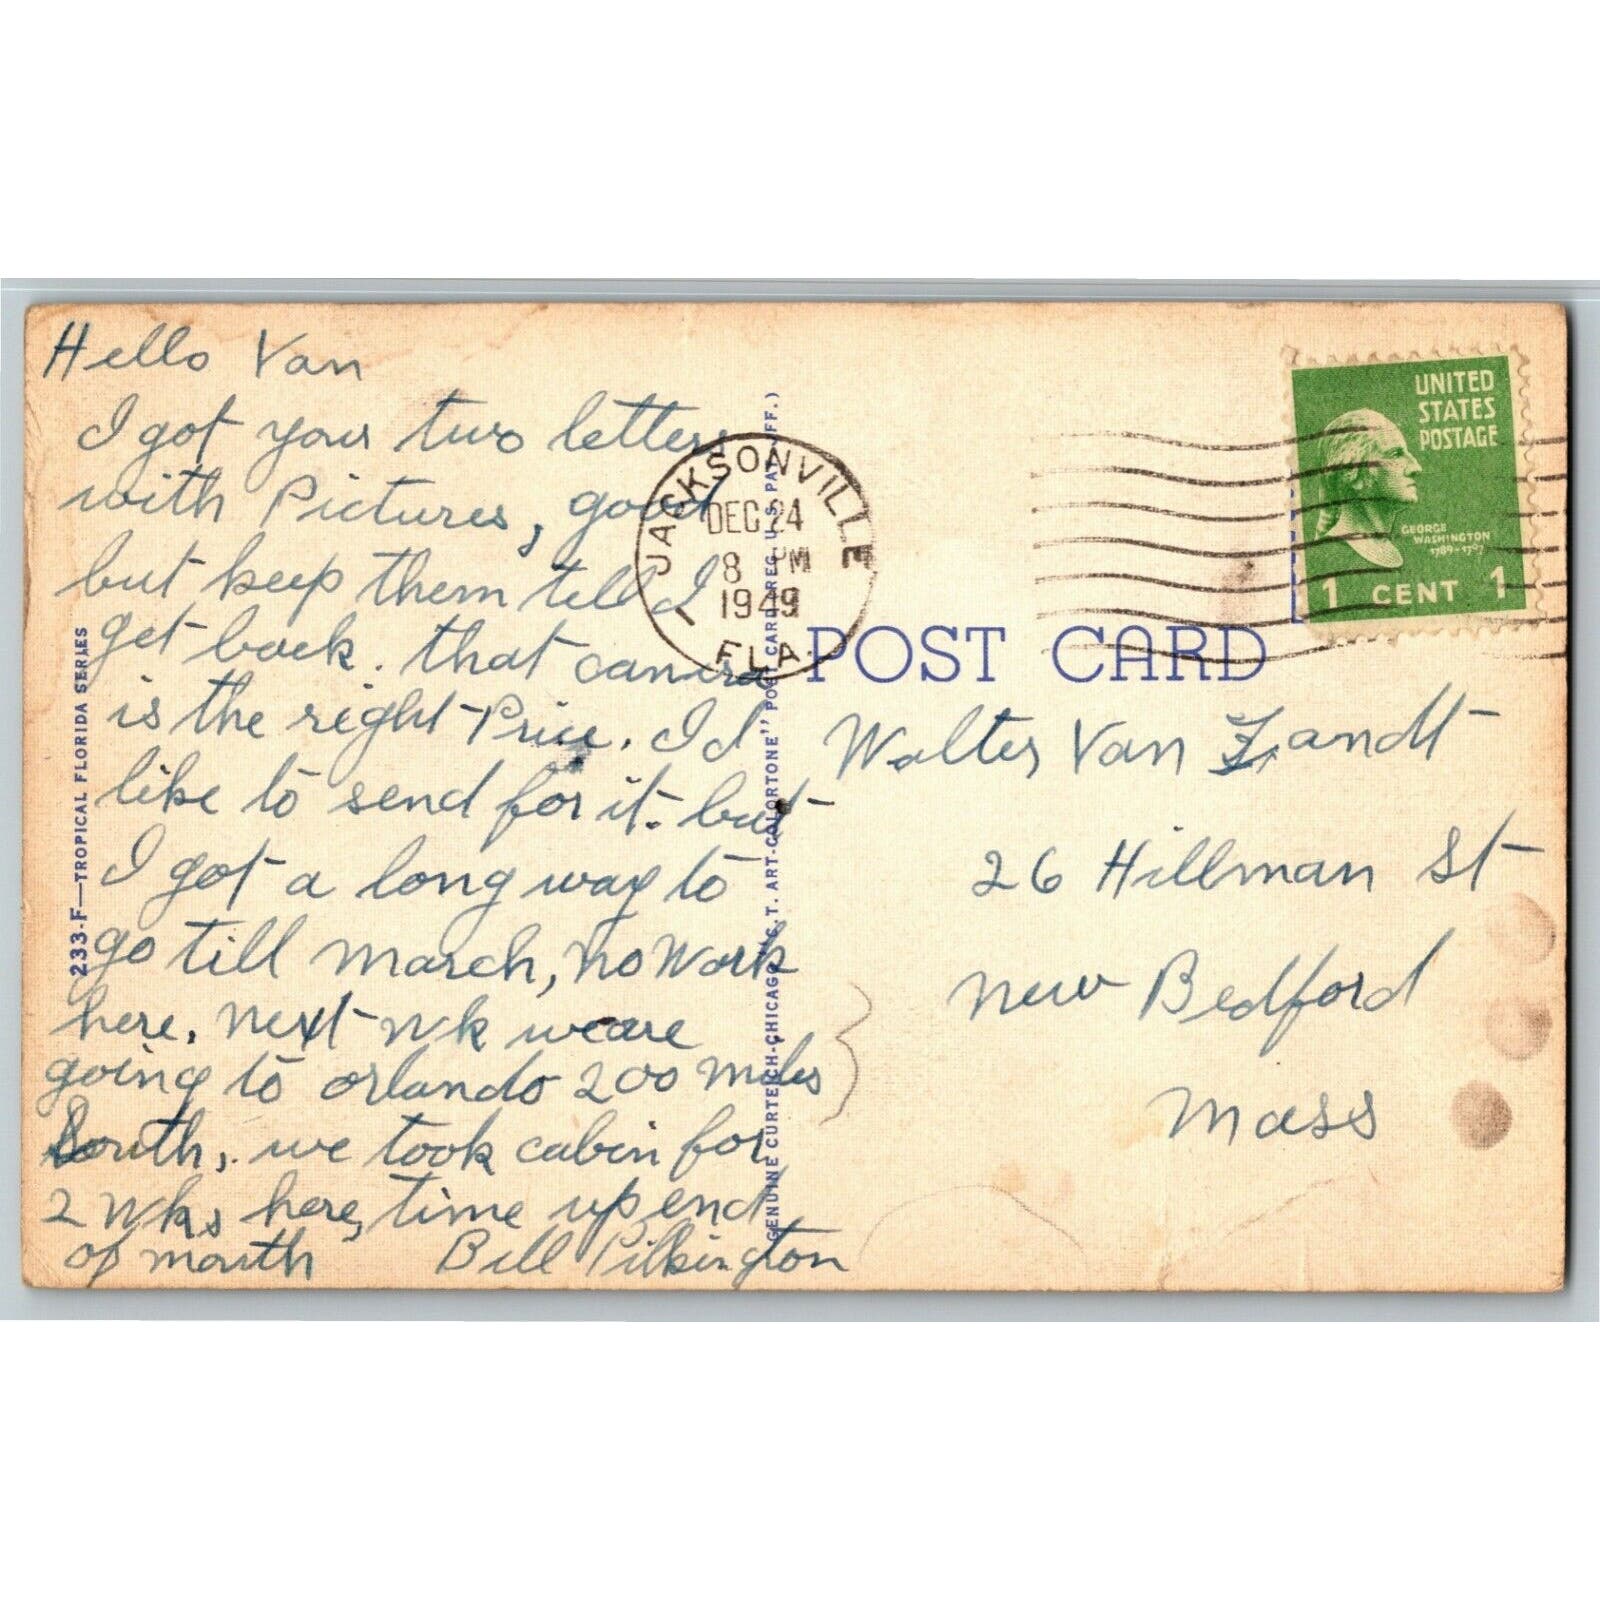 Hello Van
I got your two letters
with Pictures, good
but keep them till I
get back. that camera
is the right Price. I'd
like to send for it. but
I got a long way to
go till march, no Work
here. Next wk we are
going to orlando 200 miles
South, we took cabin for
2 wks here, time up end
of month Bill Pilkington
233-F—TROPICAL FLORIDA SERIES
GENUINE CURTEICH-CHICAGO "C.T. ART-COLORTONE" POST CARD (REG. U.S. PAT. OFF.)
JACKSONVILLE
DEC 24
8 PM
1949
FLA.
1
UNITED
STATES
POSTAGE
GEORGE
WASHINGTON
1789-1797
1 CENT 1
POST CARD
Walter Van Zandt
26 Hillman St
New Bedford
Mass